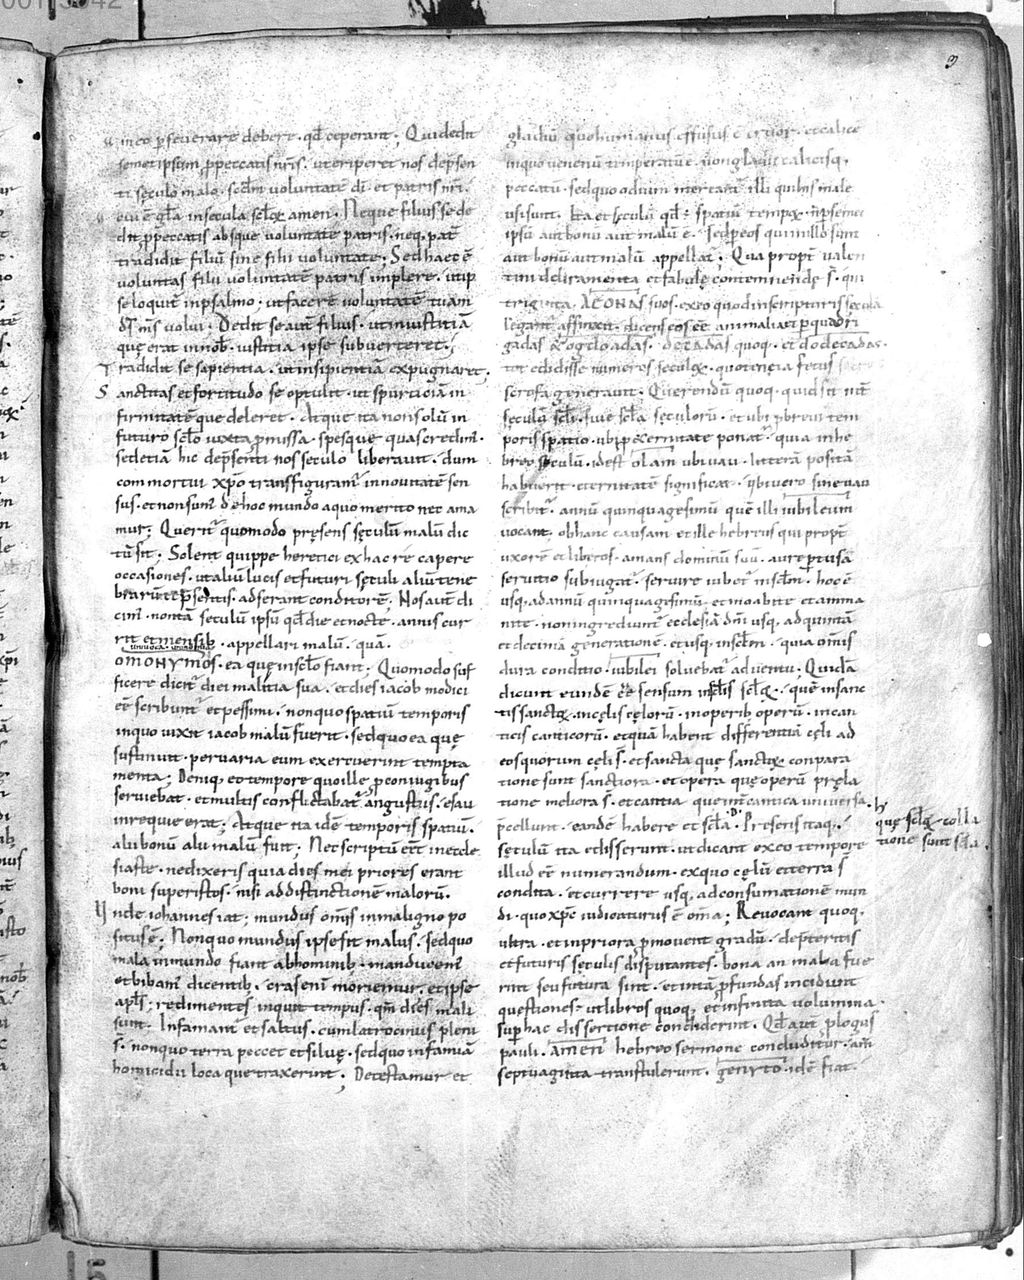 in eo pseuerare debere · qd ceperant; Qui dedit
semet ipsum ppeccatis nris · ut eriperet nos depsen
ti seculo malo · scdm voluntatē di · et patris nri ·
cui ē gla in secula sclox amen · Neque filius se de
dit ppeccatis absque voluntate patris · neq, pat
tradidit filiū sine filii voluntate · Sed haec ē
voluntas filii voluntatē patris implere · ut ip
se loquit in psalmo · ut facerē voluntatē tuam
ds ms volui · Dedit se aut filius · ut iniustitiā
quę erat in nob · iustitia ipse subuerteret;
Tradidit se sapientia · ut insipientia expugnaret;
Sanctitas et fortitudo se optulit · ut spurcitiā in
firmitatē que deleret · Atque ita non solū in
futuro sclo iuxta pmissa · spesque quas credim ·
sed etiā hic depsenti nos seculo liberauit · dum
commortui xpo transfiguram in nouitatē sen
sus · et non sum de hoc mundo a quo merito nec ama
mur; Querit quomodo pręsens sęculum malū dic
tū sit; Solent quippe heretici ex hac re capere
occasiones · ut aliū lucis et futuri sęculi aliū tene
brarū et psentis · adserant conditorē · Nos aut di
cim · non tā seculū ipsū qd die et nocte · annis cur
rit et mensib · appellari malū · quā ·
omonymos · ea quę in sclo fiant; Quomodo suf
ficere dicit diei malitia sua · et dies iacob modici
eē scribunt et pessimi · non quo spatiū temporis
in quo uixit iacob malū fuerit · sed quo ea quę
sustinuit · per uaria eum exercuerint tempta
menta; Deniq, eo tempore quo ille pconiugibus
seruiebat · et multis conflictabat angustiis · esau
in requie erat; Atque ita idē temporis spatiū ·
alii bonū alii malū fuit; Nec scriptū eēt in eccle
siaste · ne dixeris quia dies mei priores erant
boni super istos · nisi ad distinctionē malorū ·
Unde iohannes iat; mundus omis in maligno po
situs ē; Non quo mundus ipse sit malus · sed quo
mala in mundo fiant ab hominib · manducem
et bibam dicentib; cras eni moriemur · et ipse
apls; redimentes inquit tempus · qm dies mali
sunt · Infamant et saltus · cum latrociniis pleni
s · non quo terra peccet et siluę · sed quo infamiā
homicidii loca que traxerint; Detestamur et
gladiū quo humanus effusus ē cruor · et calicē
in quo venenū temperatū ē · non gladii calicisq,
peccatū · sed quo odium mereant illi qui his male
usi sunt · Ita et sęculū qd ē spatiū tempox · n p semet
ipsū aut bonū aut malū ē · sed p eos qui in illo sunt
aut bonū aut malū appellat; Qua propt valen
tini deliramenta et fabulę contemnendę s · qui
triginta AEONAS suos · ex eo quod in scripturis sęcula
legant affinxit · dicens eos eē animalia et p quadri
gadas &ogdoadas · decadas quoq · et dodecadas ·
tot edidisse numeros seculox · quot eneia fetus
scrofa generauit · Querendū quoq · quid sit inter
seculū scli · siue scla seculorū · et ubi p breui tem
poris spatio · ubi p &ernitate ponat · quia in he
breo seculū · id est olam ubi vau · litterā positā
habuerit · eternitatē significat · ubi uero sine vau
scribit · annū quinquagesimū quē illi iubileum
vocant · ob hanc causam et ille hebreus qui propt
uxorē et liberos · amans dominū suū · aure ptusā
seruitio subiugat · seruire iubet in sclm · hoc ē
usq, ad annū quinquagesimū · et moabite et amma
nite · non ingrediunt ecclesiā dni usq, ad quintā
et decimā generationē · et usq in sclm · quia omis
dura conditio · iubilei soluebat aduentu; Quidā
dicunt eundē eē sensum in sclis sclox · quē in sanc
tis sanctox · in celis celorū · in operib operū · in can
ticis canticorū · et quā habent differentiā cęli ad
eos quorum cęli s · et sancta quę sanctox conpara
tione sunt sanctiora · et opera quę operū pręla
tione meliora s · et cantica quę int cantica uniuersa ·
pcellunt · eandē habere et scla · Presens itaq,
sęculū ita edisserunt · ut dicant ex eo tempore
illud eē numerandum · ex quo cęlū et terra s
condita · et currere usq, ad consumationē mun
di · quo xpc iudicaturus ē oma; Reuocant quoq,
ultra · et in priora pmouent gradū · de pteritis
et futuris sęculis disputantes · bona an mala fue
rint seu futura sint · et in tā pfundas incidunt
questiones · ut libros quoq, et infinita volumina ·
sup hac dissertione condiderint · Qd aut plogus
pauli · AMEN hebreo sermone concluditur · am
septuaginta transtulerunt · genito · idē fiat ·
quę sclox colla
tione sunt scla ·